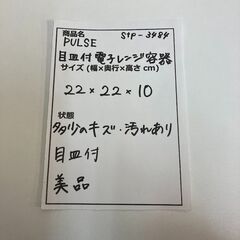 商品名 Stp-3484
PULSE
目皿付電子レンジ容器
サイズ(幅×奥行×高さcm)
22×22×10
状態
多少のキズ・汚れあり
目皿付
美品